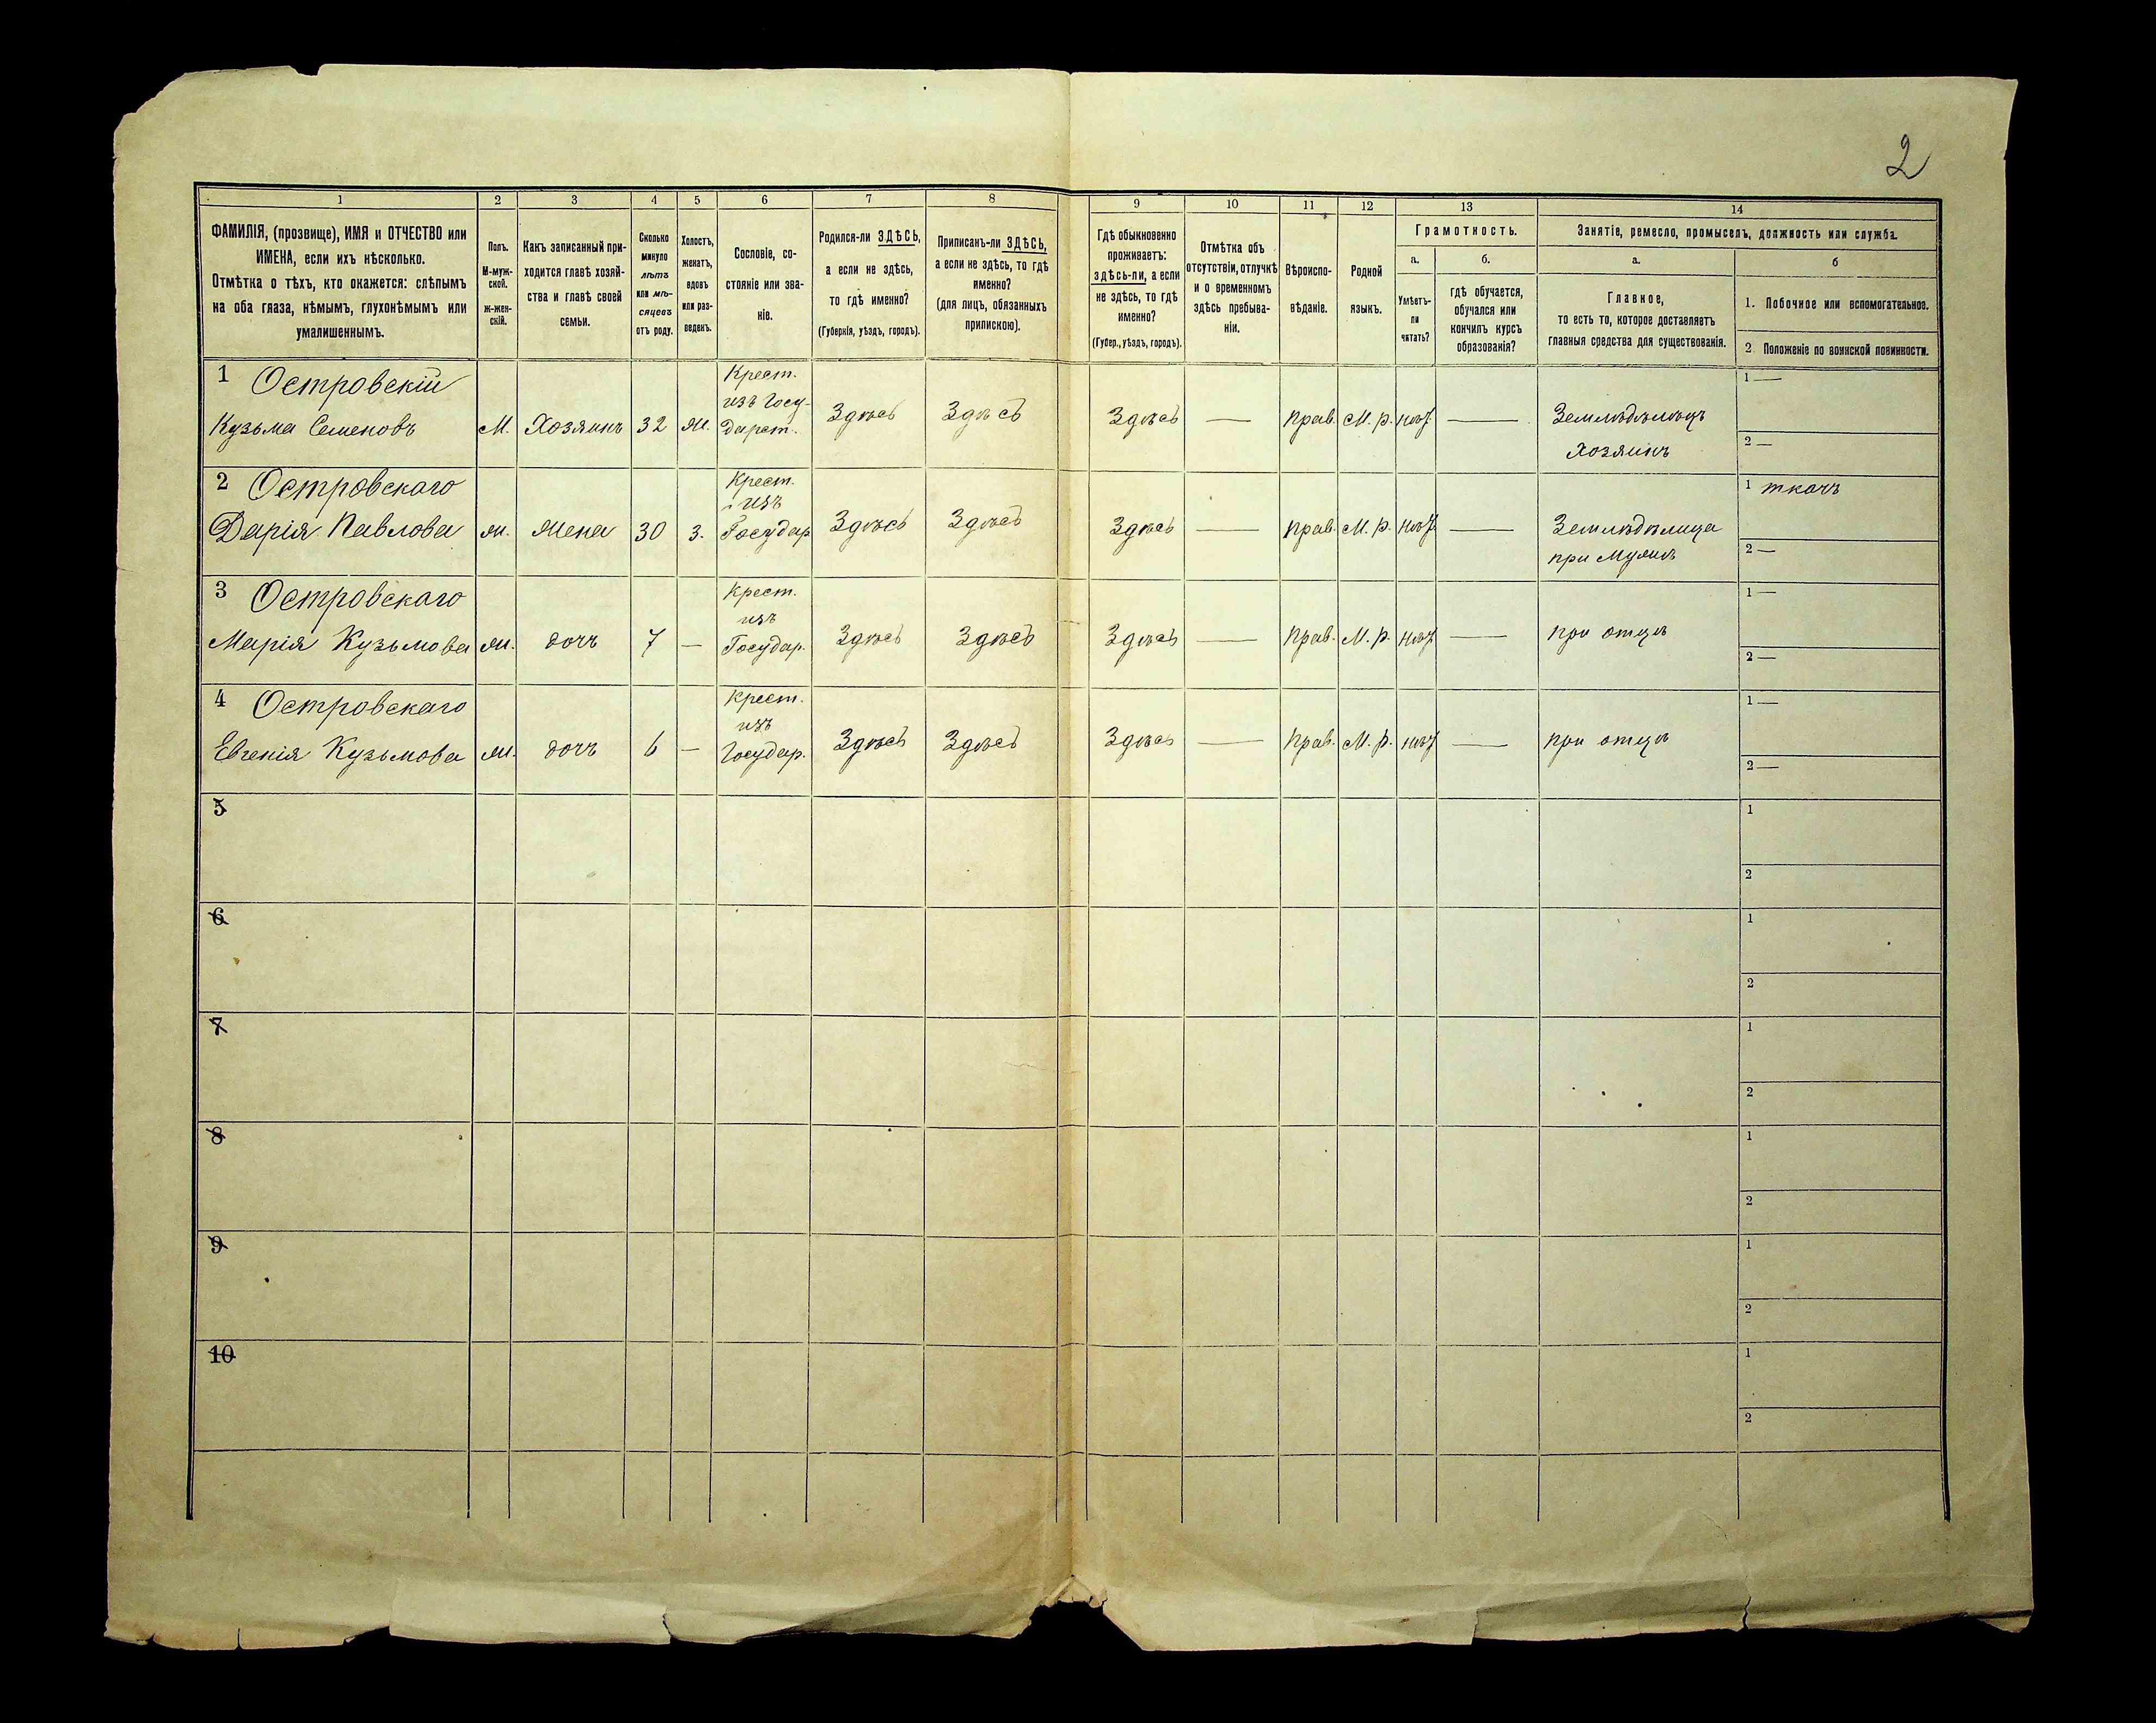 2
1 2 3 4 5 6 7 8 9 10 11 12 13 14
ФАМИЛІЯ, (прозвище), ИМЯ и ОТЧЕСТВО или
ИМЕНА, если ихъ нѣсколько.
Отмѣтка о тѣхъ, кто окажется: слѣпымъ
на оба глаза, нѣмымъ, глухонѣмымъ или
умалишеннымъ.
Полъ.
М-муж-
ской.
ж-жен-
скій.
Какъ записанный при-
ходится главѣ хозяй-
ства и главѣ своей
семьи.
Сколько
минуло
лѣтъ
или мѣ-
сяцевъ
отъ роду.
Холостъ,
женатъ,
вдовъ
или раз-
веденъ.
Сословіе, со-
стояніе или зва-
ніе.
Родился-ли ЗДѢСЬ,
а если не здѣсь,
то гдѣ именно?
(Губернія, уѣздъ, городъ).
Приписанъ-ли ЗДѢСЬ,
а если не здѣсь, то гдѣ
именно?
(для лицъ, обязанныхъ
припискою).
Гдѣ обыкновенно
проживаетъ:
здѣсь-ли, а если
не здѣсь, то гдѣ
именно?
(Губер., уѣздъ, городъ).
Отмѣтка объ
отсутствіи, отлучкѣ
и о временномъ
здѣсь пребыва-
ніи.
Вѣроиспо-
вѣданіе.
Родной
языкъ.
Грамотность.
а.
Умѣетъ-
ли
читать?
б.
гдѣ обучается,
обучался или
кончилъ курсъ
образованія?
Занятіе, ремесло, промыселъ, должность или служба.
а.
Главное,
то есть то, которое доставляетъ
главныя средства для существованія.
б
1. Побочное или вспомогательное.
2 Положеніе по воинской повинности.
1 Островскій
Кузьма Семеновъ
М.
Хозяинъ
32
Ж.
Крест.
изъ Госу-
дарст.
Здѣсь
Здѣсь
Здѣсь
—
Прав.
М. р.
нѣт
—
Земледѣлецъ
Хозяинъ
1 —
2 —
2 Островскаго
Дарія Павлова
ж.
Жена
30
З.
Крест.
изъ
Государ.
Здѣсь
Здѣсь
Здѣсь
—
Прав.
М. р.
нѣт
—
Земледѣлица
при Мужѣ
1 ткачъ
2 —
3 Островскаго
Марія Кузьмова
ж.
дочь
7
—
Крест.
изъ
Государ.
Здѣсь
Здѣсь
Здѣсь
—
Прав.
М. р.
нѣт
—
при отцѣ
1 —
2 —
4 Островскаго
Евгенія Кузьмова
ж.
дочь
6
—
Крест.
изъ
Государ.
Здѣсь
Здѣсь
Здѣсь
—
Прав.
М. р.
нѣт
—
при отцѣ
1 —
2 —
5
1
2
6
1
2
7
1
2
8
1
2
9
1
2
10
1
2